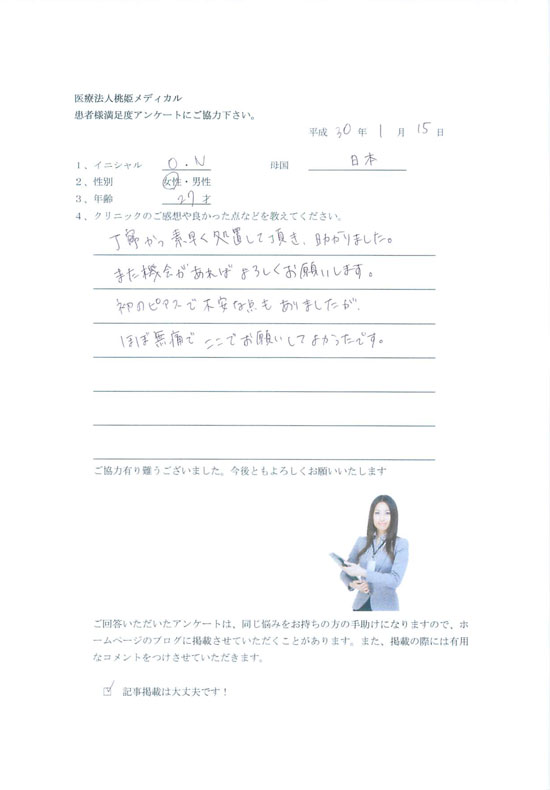 医療法人桃姫メディカル
患者様満足度アンケートにご協力下さい。
平成 30 年 1 月 15 日
1、イニシャル O・N 母国 日本
2、性別 女性・男性
3、年齢 27才
4、クリニックのご感想や良かった点などを教えてください。
丁寧かつ素早く処置して頂き、助かりました。
また機会があればよろしくお願いします。
初のピアスで不安な点もありましたが、
ほぼ無痛でここでお願いしてよかったです。
ご協力有り難うございました。今後ともよろしくお願いいたします
ご回答いただいたアンケートは、同じ悩みをお持ちの方の手助けになりますので、ホ
ームページのブログに掲載させていただくことがあります。また、掲載の際には有用
なコメントをつけさせていただきます。
☑ 記事掲載は大丈夫です！